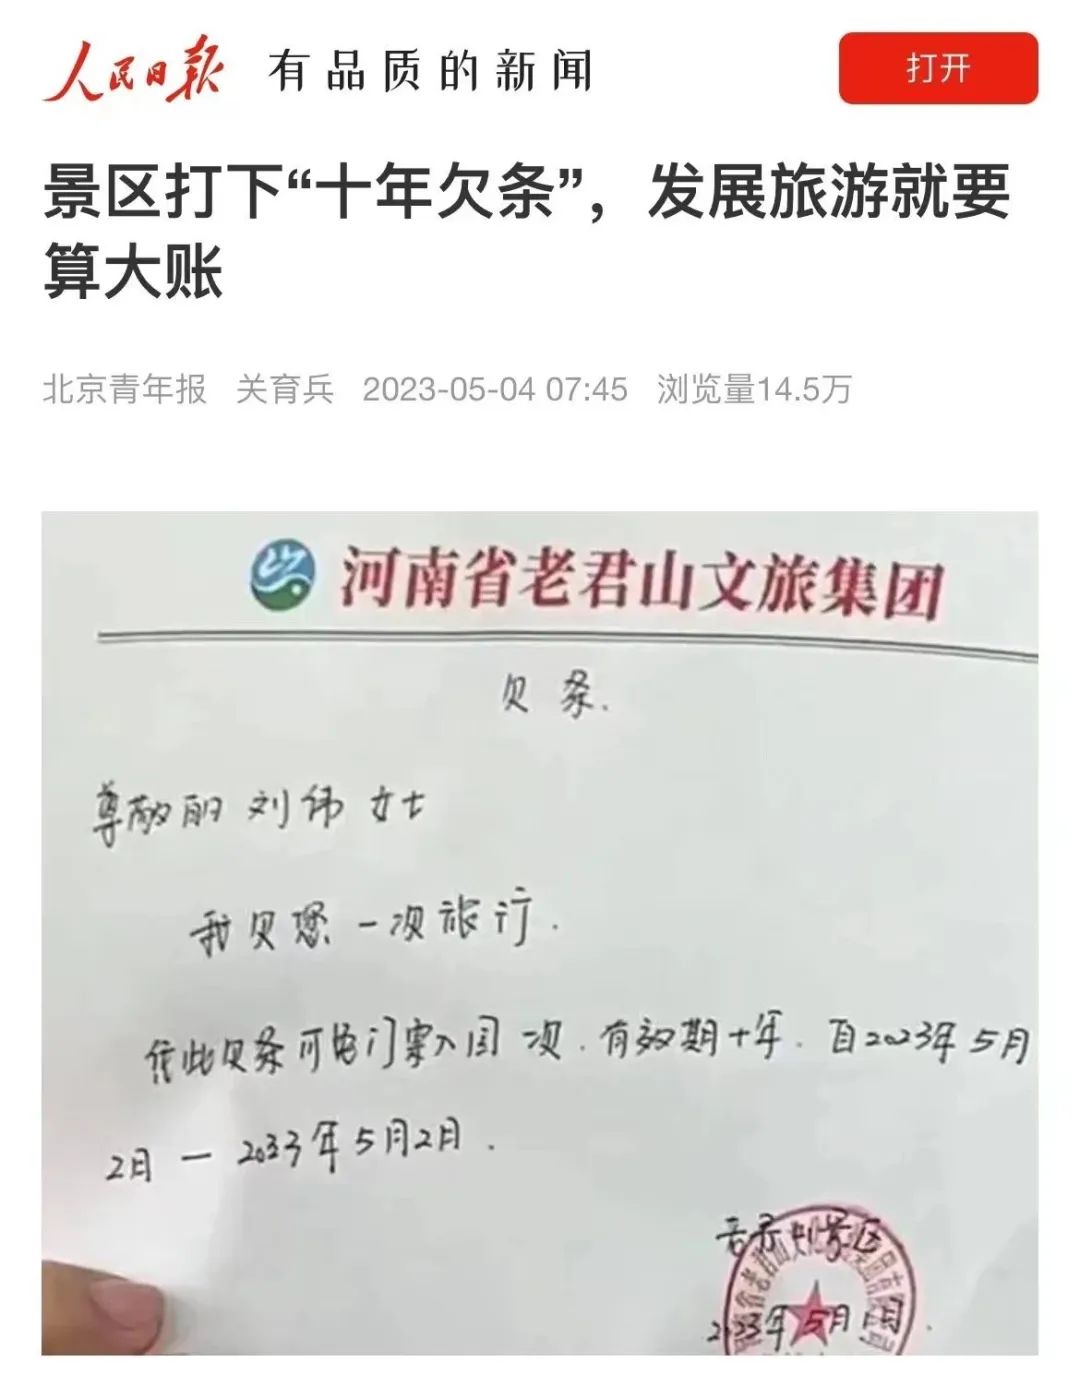 人民日报 有品质的新闻 打开
景区打下“十年欠条”，发展旅游就要
算大账
北京青年报 关育兵 2023-05-04 07:45 浏览量14.5万
河南省老君山文旅集团
欠条.
尊敬的 刘伟 女士
我欠您一次旅行.
凭此欠条可免门票入园一次.有效期十年.自2023年5月
2月 — 2033年5月2日.
老君山景区
2023年5月1日.